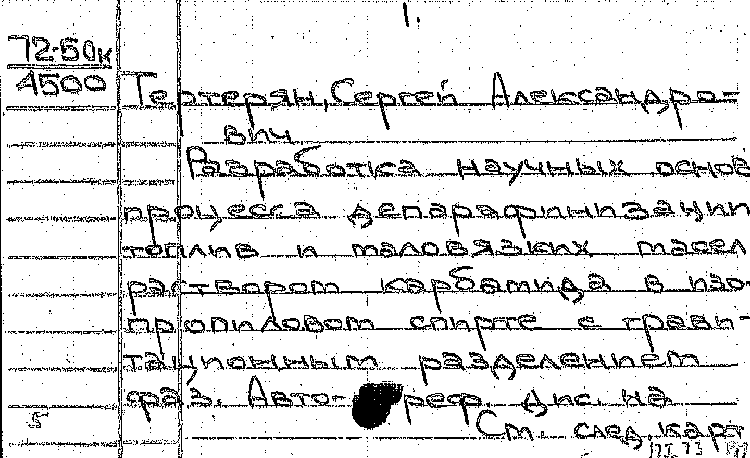 1.
72-50к
4500
Тертерян, Сергей Александро-
вич
Разработка научных основ
процесса депарафинизации
топлив и маловязких масел
раствором карбамида в изо-
пропиловом спирте с грави-
тационным разделением
фаз. Авто- реф. дис. на
5
См. след. карт